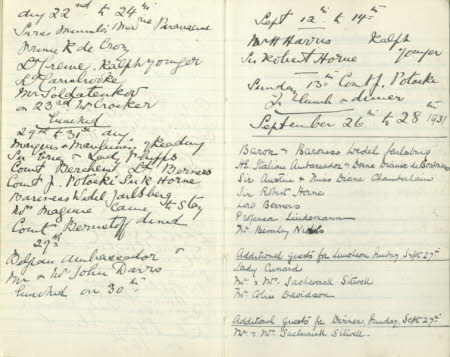 Aug 22nd to 24th
Prince R de Croy
Ld Crewe. Ralph younger
Mr Soldatenkov
on 23rd Mr Crocker
lunched
29th to 31st Aug
Marquis & Marchioness of Reading
Sir Eric & Lady Phipps
Count Berchem, Ld Berners
Count J. Potocki Sir R Horne
Baroness Wedel Jarlsberg
Mr Maguire came to stay
Count Bernstoff dined
29th
Belgian Ambassador
Mr & Mrs John Davis
lunched on 30th
Sept 12th to 14th
Mr H Harris Ralph
Sir Robert Horne younger
Sunday 13th Count J. Potocki
lunch & dinner
September 26th to 28th 1931
Baron & Baroness Wedel Jarlsburg
H.E. Italian Ambassador & Donna
Sir Austin & Miss Diane Chamberlain
Sir Robert Horne
Lord Berners
Professor Lindemann
Mr Beverley Nichols
Additional Guests for Luncheon Sunday, Sept 27th
Lady Cunard
Mr & Mrs Sacheverell Sitwell
Mr Colin Davidson
Additional Guests for Dinner, Sunday, Sept 27th
Mr & Mrs Sacheverell Sitwell.